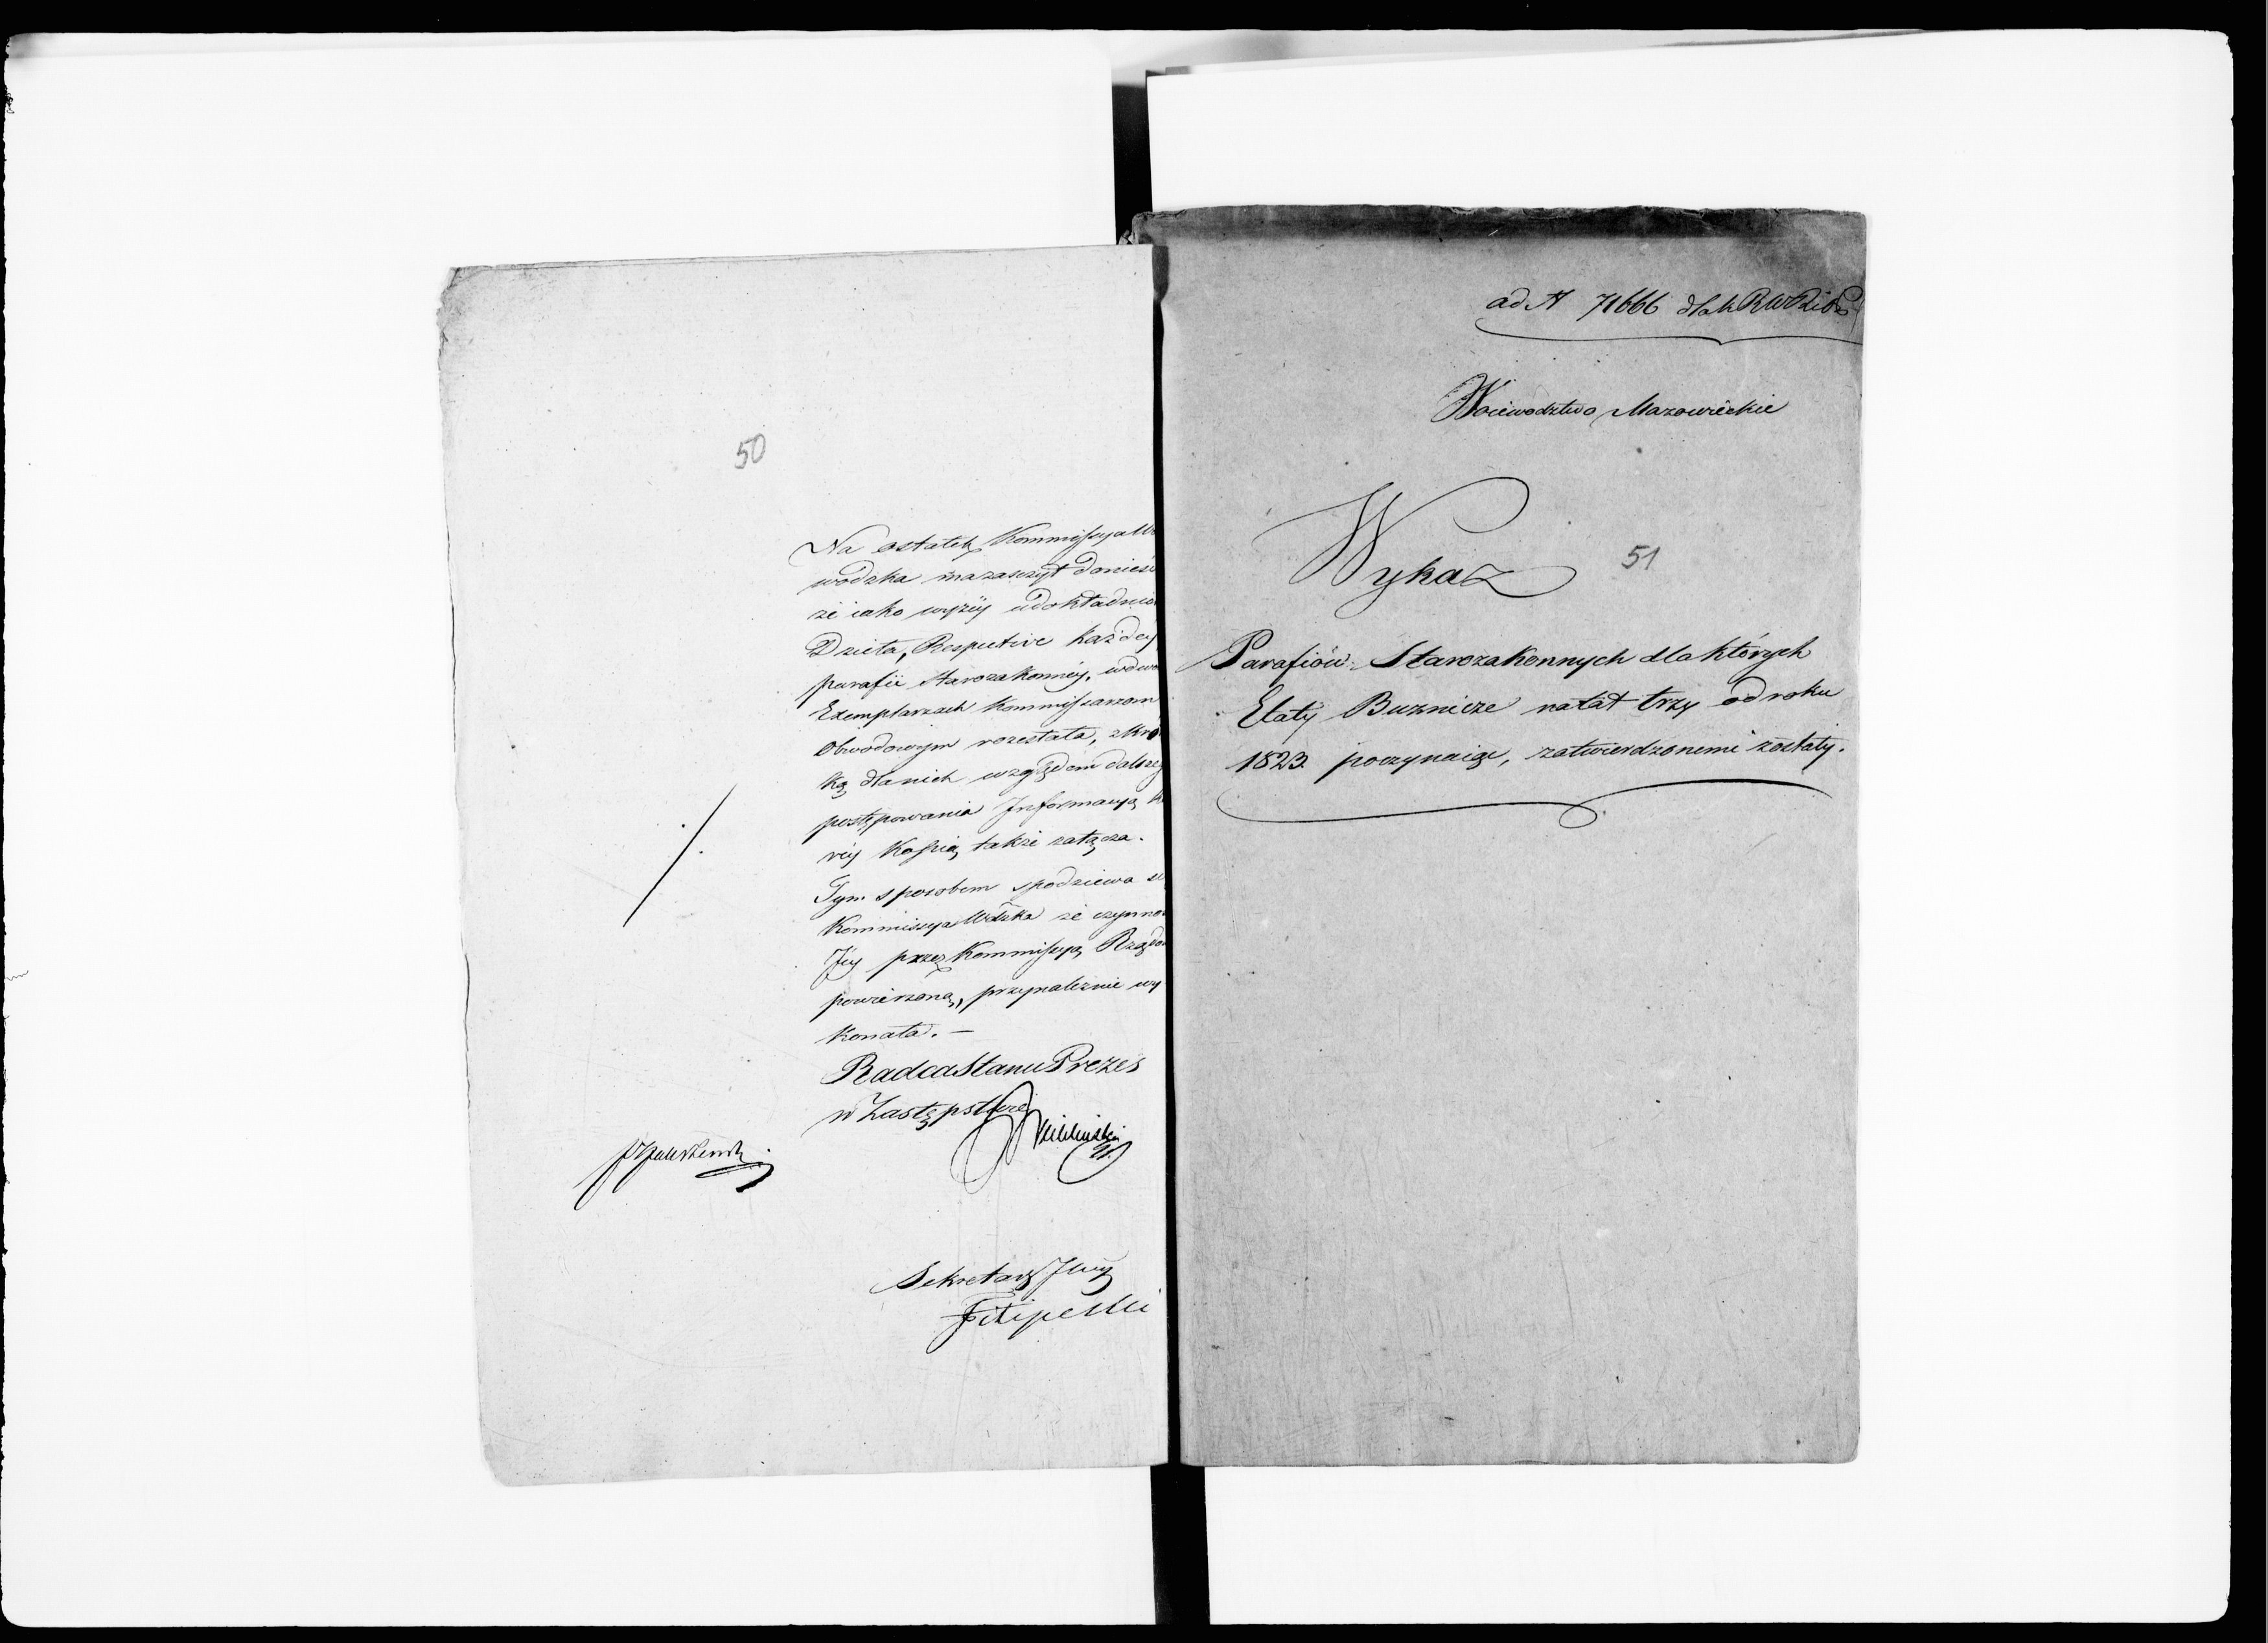 50
Na ostatek Kommissya Wo
wodzka ma zaszczyt donieść
że iako wyżéy udokładnio
Dzieła, Respective każdey
parafii Starozakonnéy, w dwo
Exemplarzach Kommissarzom
Obwodowym rozesłała, z kró
ką dla nich względem dalszeg
postępowania Informacyą, k
réy Kopią także załącza.
Tym sposobem spodziewa si
Kommissya Wdzka że czynno
Jéy przez Kommissyą Rządo
powierzoną, przynależnie wy
konała. —
Radca Stanu Prezes
w Zastępstwie
Sekretarz Jlny
Filipecki
ad N 71666 dla k R W R i O P
Województwo Mazowieckie
Wykaz
51
Parafiów Starozakonnych dla których
Etaty Buznicze na lat trzy od roku
1823. poczynaiąc, zatwierdzonemi zostały.